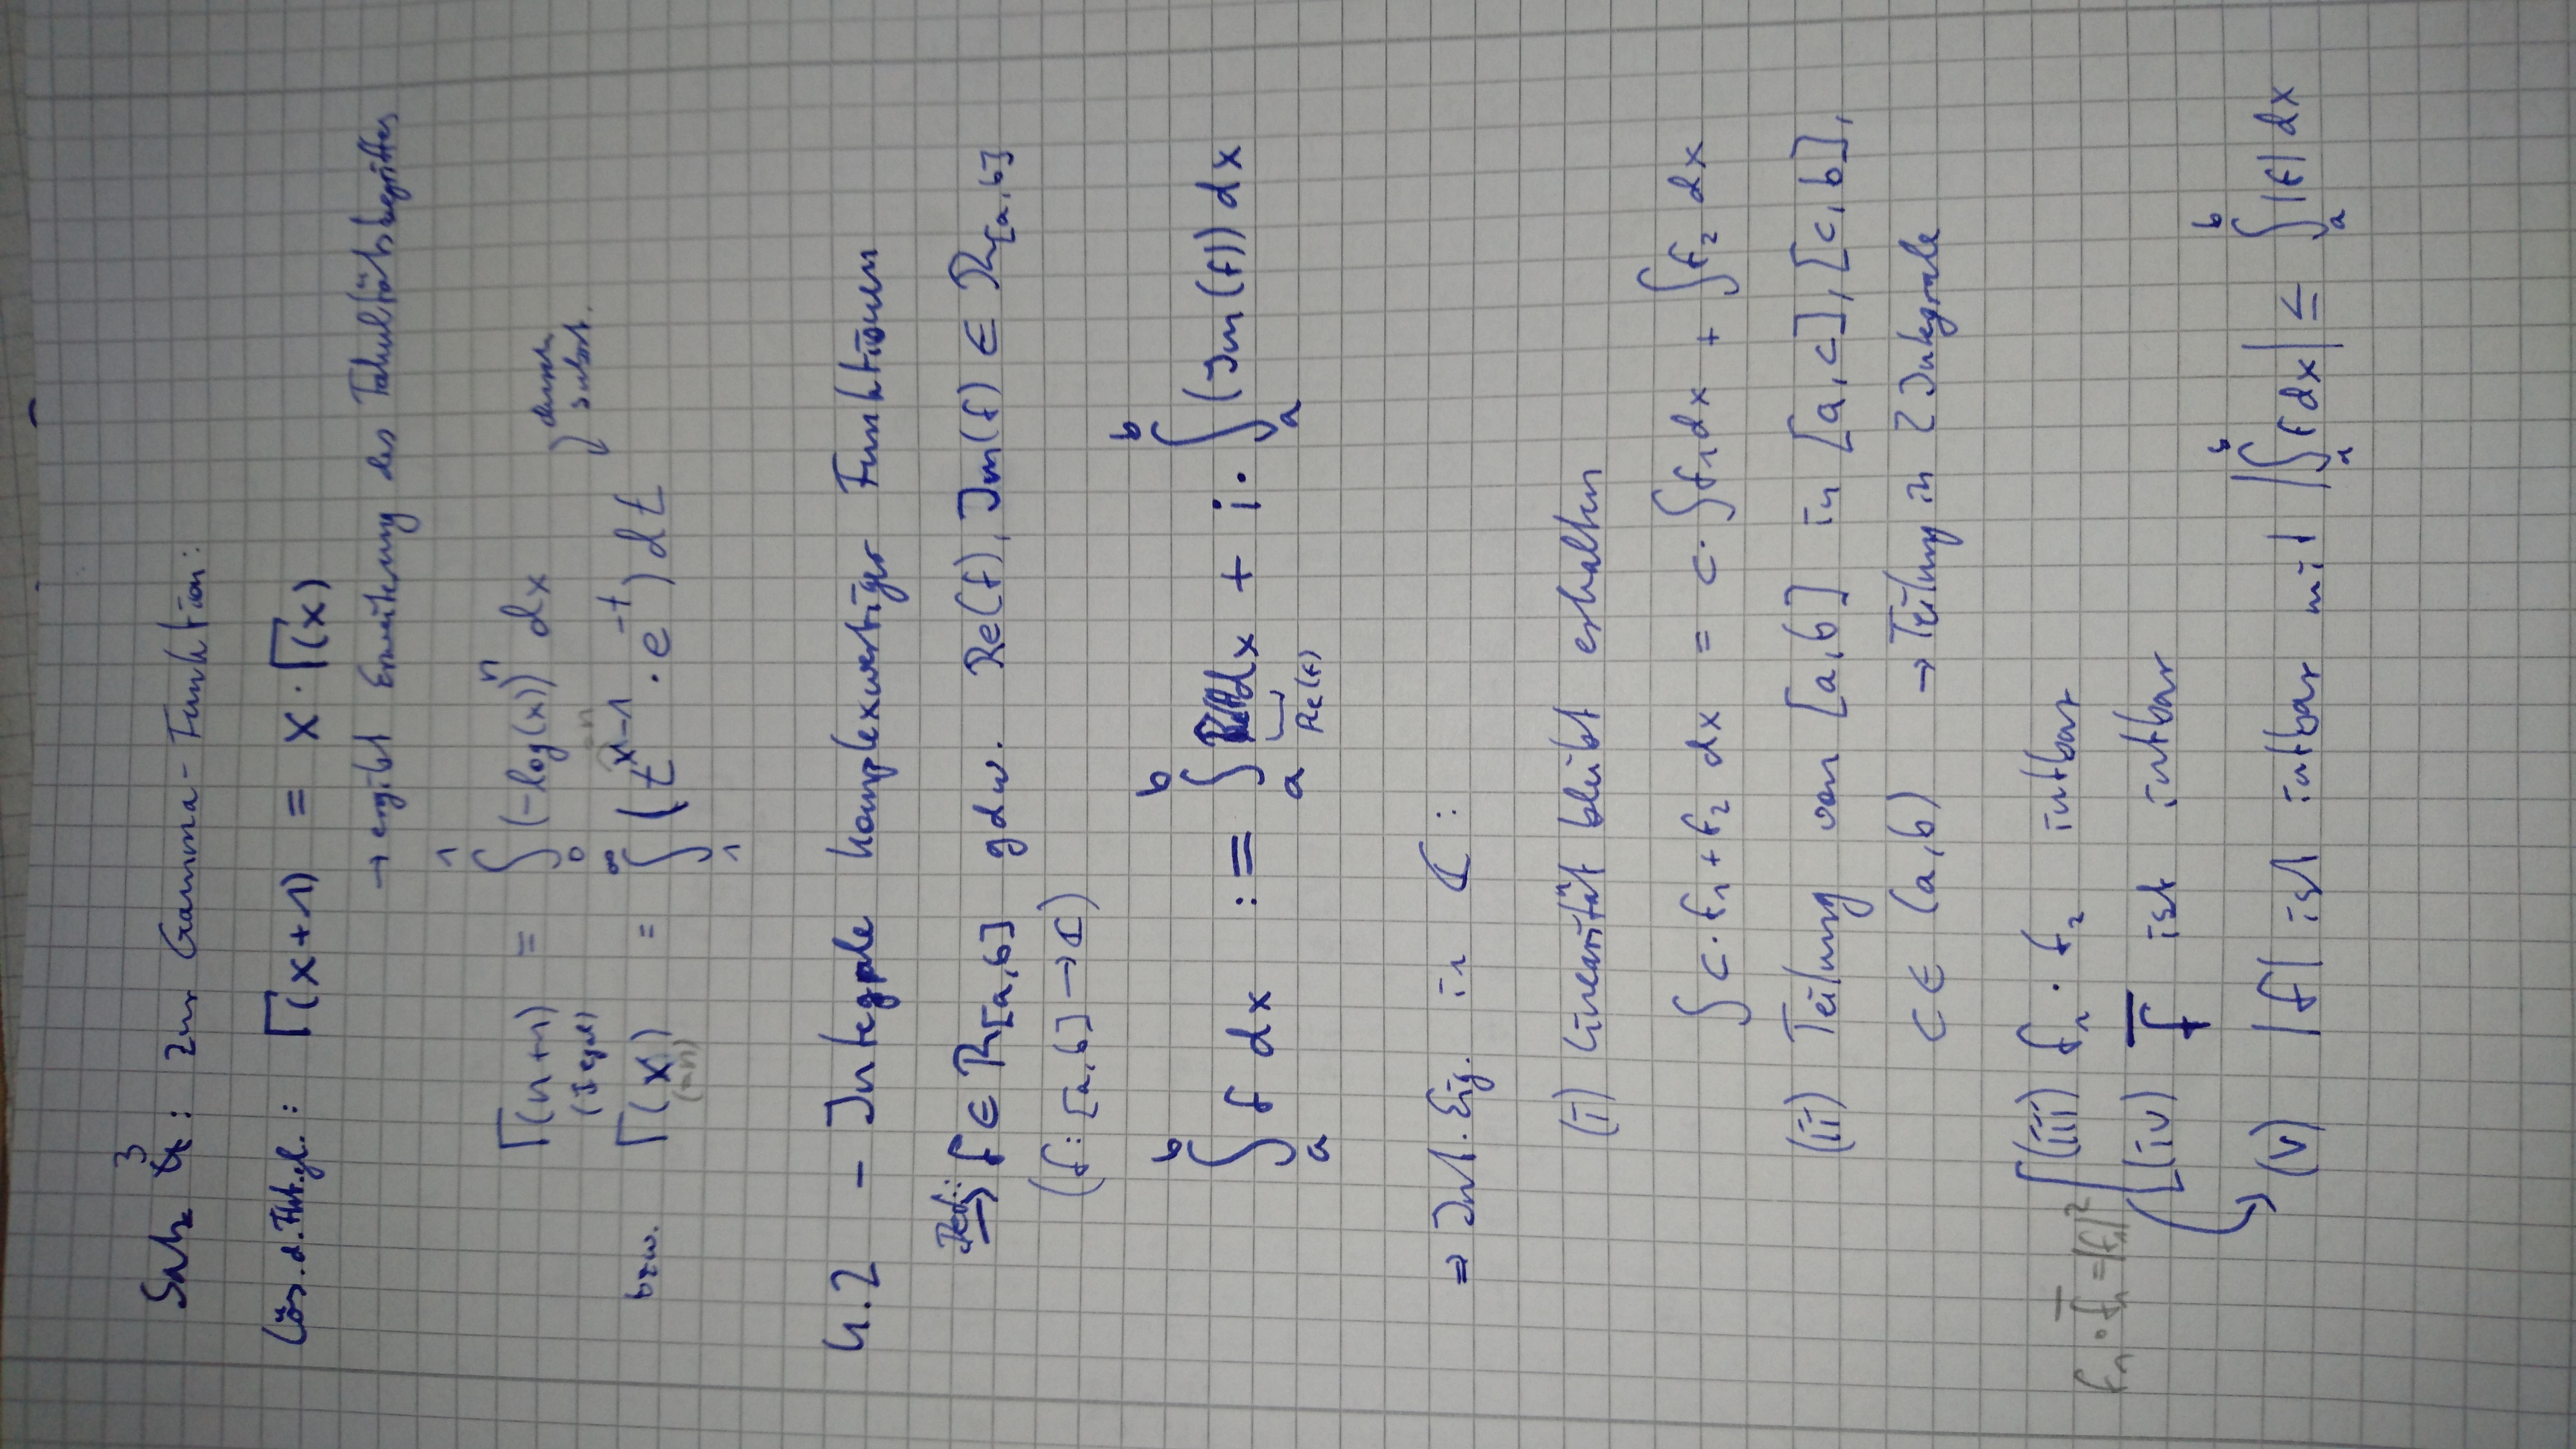 Satz 3: Zur Gamma-Funktion:
Lös. d. Fkt.gl.: Γ(x+1) = x · Γ(x)
→ ergibt Erweiterung des Fakultätsbegriffes
Γ(n+1) = ∫₀¹ (-log(x))ⁿ dx
durch Subst.
bzw. Γ(x) = ∫₁^∞ (t^(x-1) · e^(-t)) dt
(=n)
4.2 - Integrale komplexwertiger Funktionen
Def.: f ∈ R[a,b] gdw. Re(f), Im(f) ∈ R[a,b]
(f: [a,b] → ℂ)
∫ₐᵇ f dx := ∫ₐᵇ Re(f) dx + i · ∫ₐᵇ (Im(f)) dx
Re(f)
⇒ Int. Eig. in ℂ:
(i) Linearität bleibt erhalten
∫ c·f₁+f₂ dx = c· ∫f₁dx + ∫f₂ dx
(ii) Teilung von [a,b] in [a,c], [c,b],
c ∈ (a,b) → Teilung in 2 Integrale
(iii) f₁ · f₂ intbar
f₁ · f̅₁ = |f₁|²
(iv) f̅ ist intbar
(v) |f| ist intbar mit |∫ₐᵇ f dx| ≤ ∫ₐᵇ |f| dx